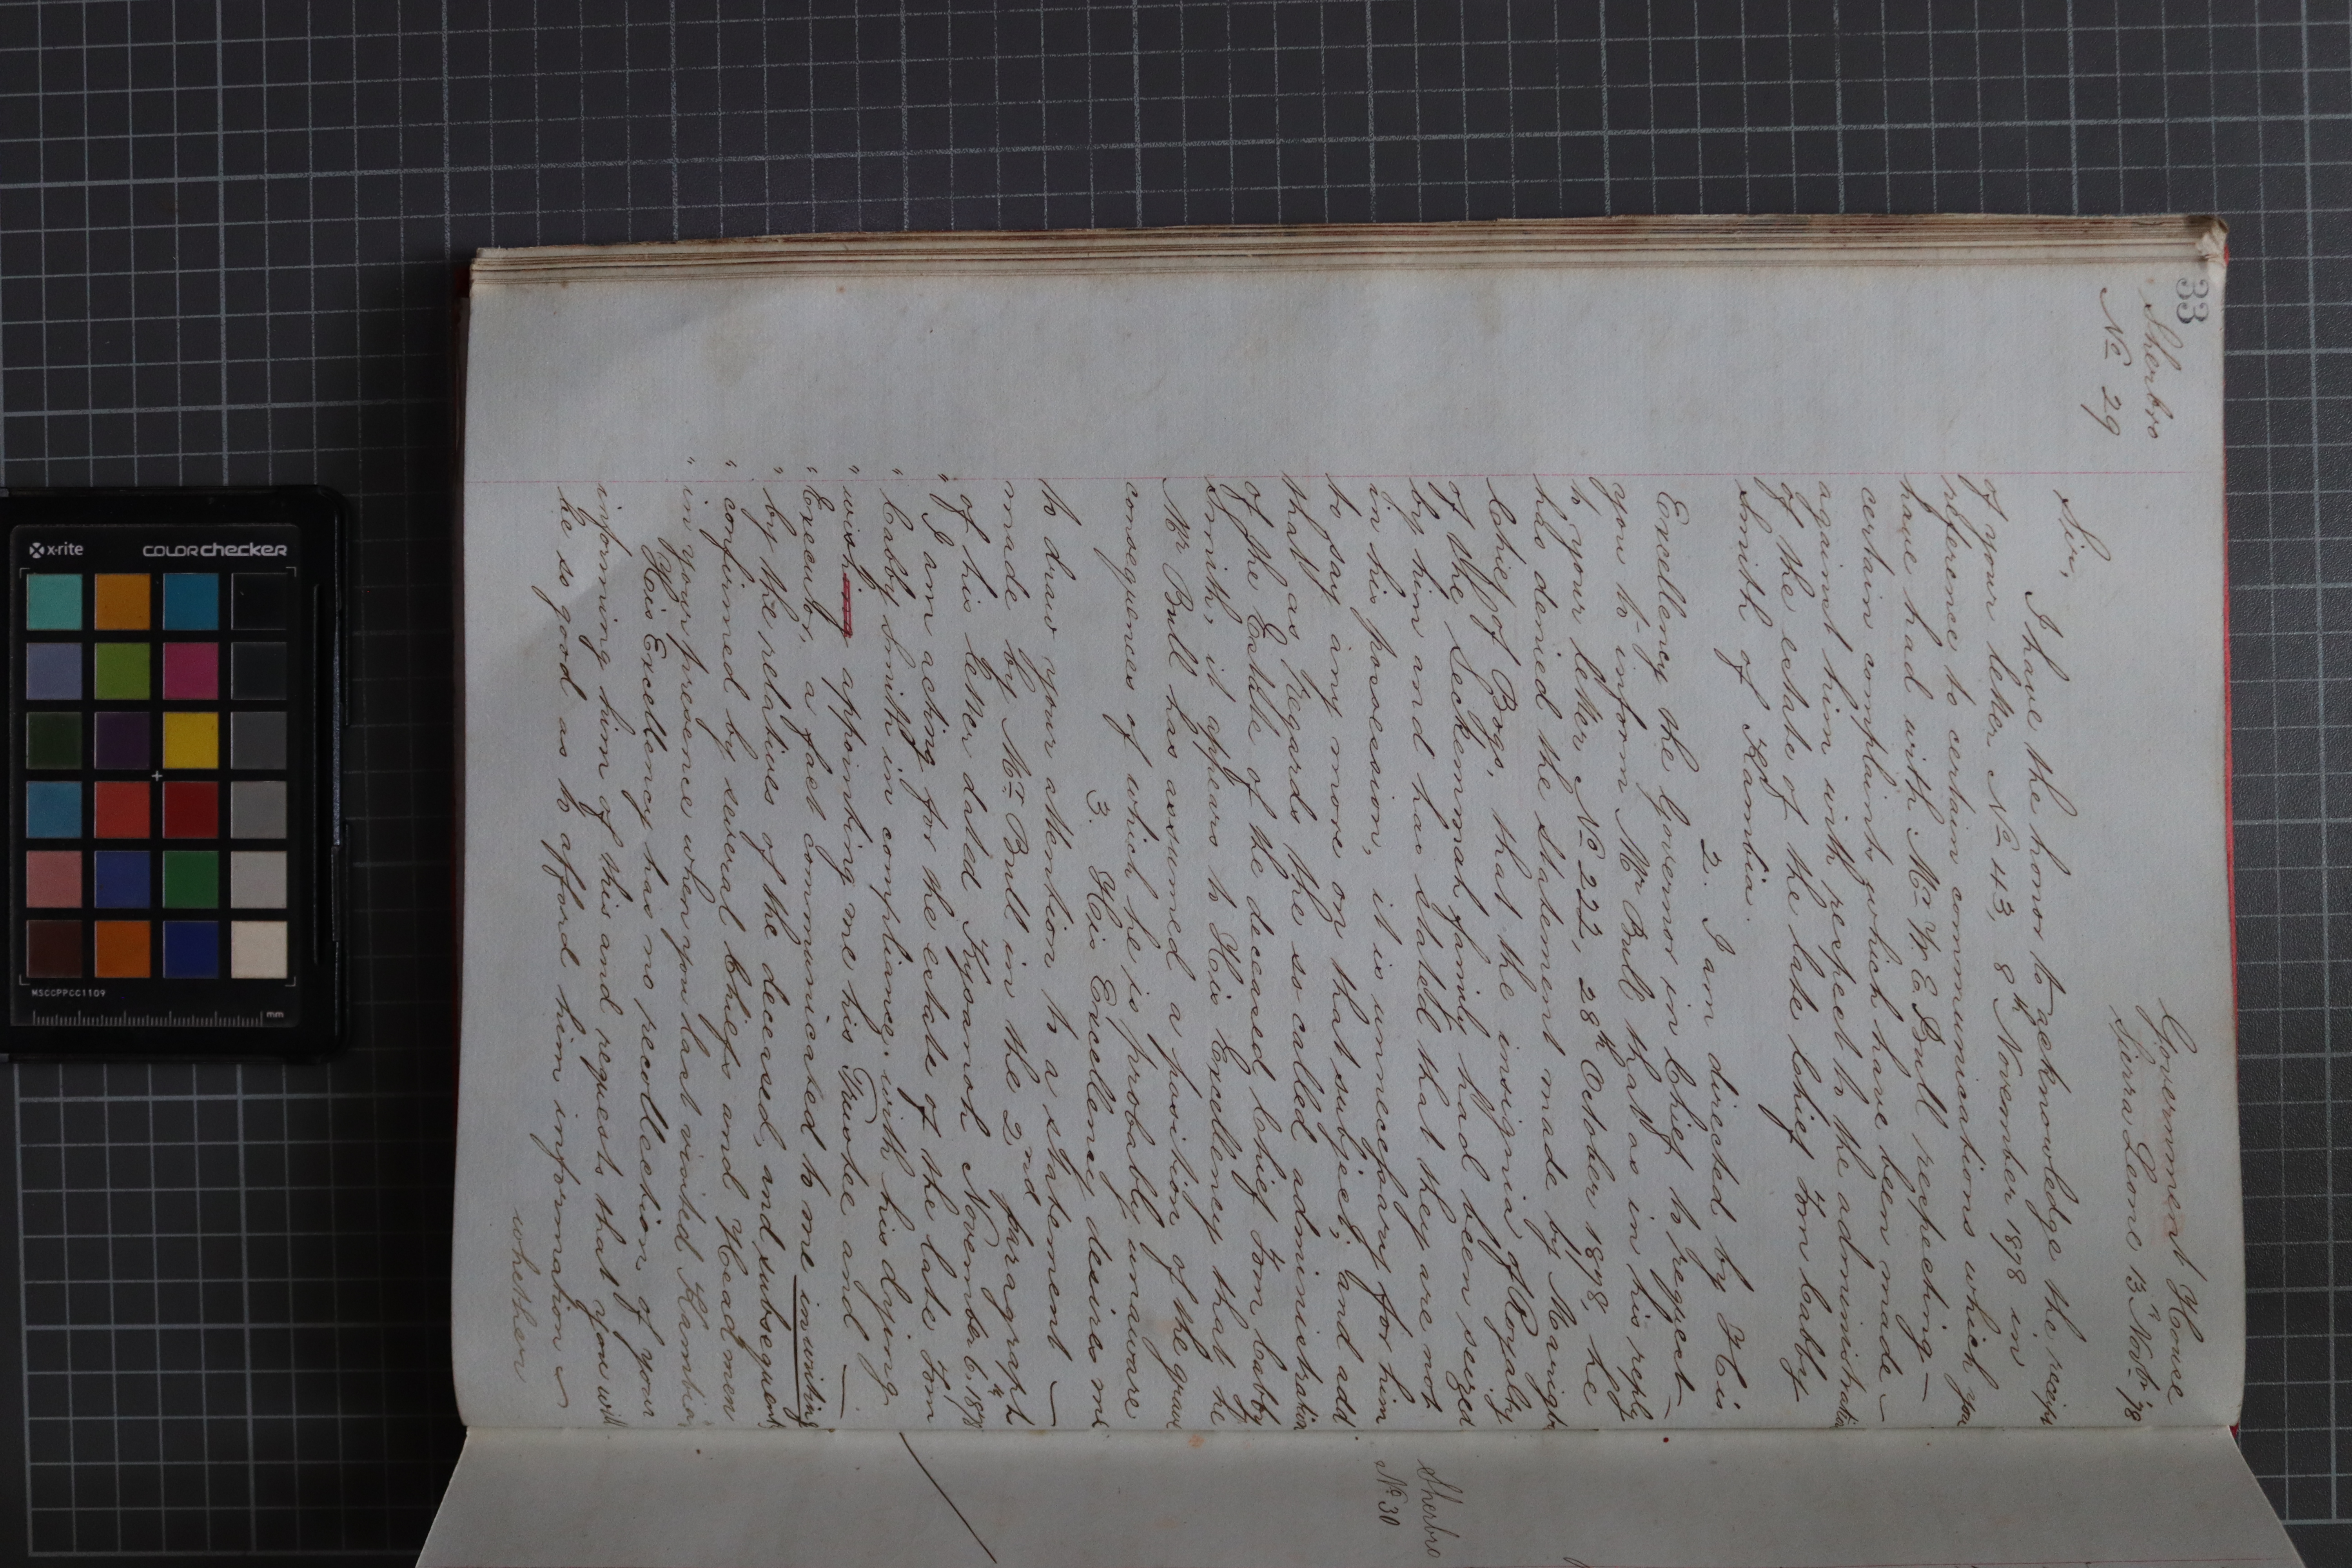 33
Sherbro
No 29
Government House
Sierra Leone 13th Novbr 78
Sir,
I have the honor to acknowledge the receipt
of your letter No 43, 8th November 1878 in
reference to certain communications which you
have had with Mr W. E Bull respecting —
certain complaints which have been made —
against him with respect to the administration
of the estate of the late Chief Tom Cabby
Smith of Kambia.
2. I am directed by His
Excellency the Governor in Chief to request —
you to inform Mr Bull that as in his reply
to your letter No 222, 28th October 1878, he
has denied the statement made by
Chief of Bogo, that the insignia of Royalty
of the Seckemmah family had been seized
by him and has stated that they are not
in his possession, it is unnecessary for him
to say any more on that subject; and add
that as regards the so called administration
of the Estate of the deceased Chief Tom Cabby
Smith, it appears to His Excellency that he
Mr Bull has assumed a position of the grave
consequences of which he is probably unaware
3. His Excellency desires me
to draw your attention to a statement —
made by Mr Bull in the 2nd paragraph
of his letter dated November 6th 1878
" I am acting for the estate of the late Tom
" Cabby Smith in compliance with his dying
" wishing appointing me his Trustee and —
" Executor, a fact communicated to me in writing
" by the relatives of the deceased, and subsequently
" confirmed by several Chiefs and Headmen
" in your presence when you last visited Kambia"
His Excellency has no recollection of your
informing him of this and requests that you will
be so good as to afford him information —
whether
Sherbro
No 30
X x-rite
COLORCHECKER
MSCCPPCC1109
mm